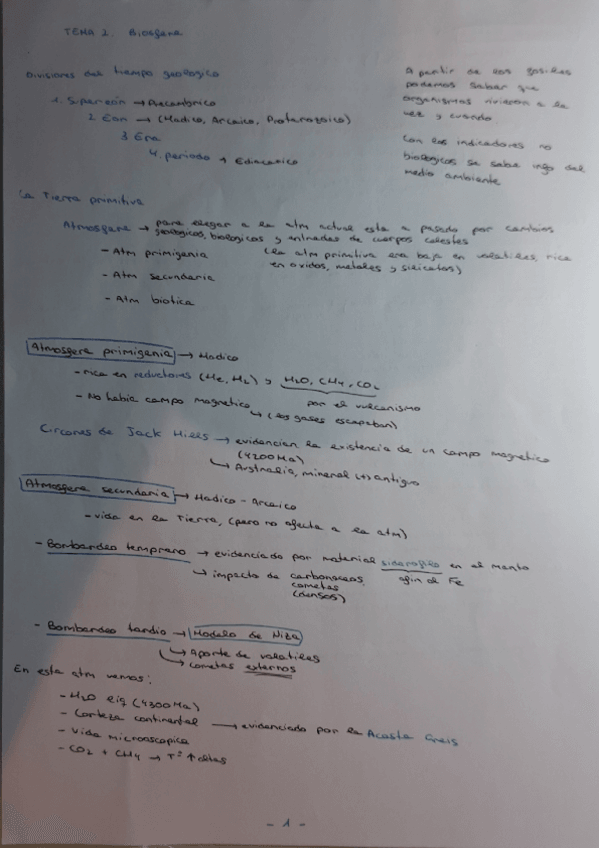 TEMA 2. Biosfera
Divisiones del tiempo geologico
1. Supereón → Precámbrico
2 Eon → (Hadico, Arcaico, Proterozoico)
3 Era
4. periodo → Ediacarico
A partir de los fosiles
podemos saber que
organismos vivieron a la
vez y cuando
Con los indicadores no
biologicos se sabe info del
medio ambiente
La Tierra primitiva
Atmosfera → para llegar a la atm actual esta a pasado por cambios
geologicos, biologicos y entradas de cuerpos celestes
- Atm primigenia
(la atm primitiva era baja en volatiles, rica
en oxidos, metales y silicatos)
- Atm secundaria
- Atm biotica
Atmosfera primigenia → Hadico
- rica en reductores (He, H2) y H2O, CH4, CO2
por el vulcanismo
- No habia campo magnetico
↳ (los gases escapaban)
Circones de Jack Hills → evidencian la existencia de un campo magnetico
(4200 Ma)
↳ Australia, mineral (+) antiguo
Atmosfera secundaria → Hadico - Arcaico
- vida en la Tierra, (pero no afecta a la atm)
- Bombardeo temprano → evidenciado por material siderofilo en el manto
afin al Fe
↳ impacto de carbonaceos,
cometas
(densos)
- Bombardeo tardio → Modelo de Niza
↳ Aporte de volatiles
↳ cometas externos
En esta atm vemos:
- H2O liq (4300 Ma)
- Corteza continental → evidenciado por la Acasta Gneis
- Vida microscopica
- CO2 + CH4 → Tª ↑ altas
- 1 -